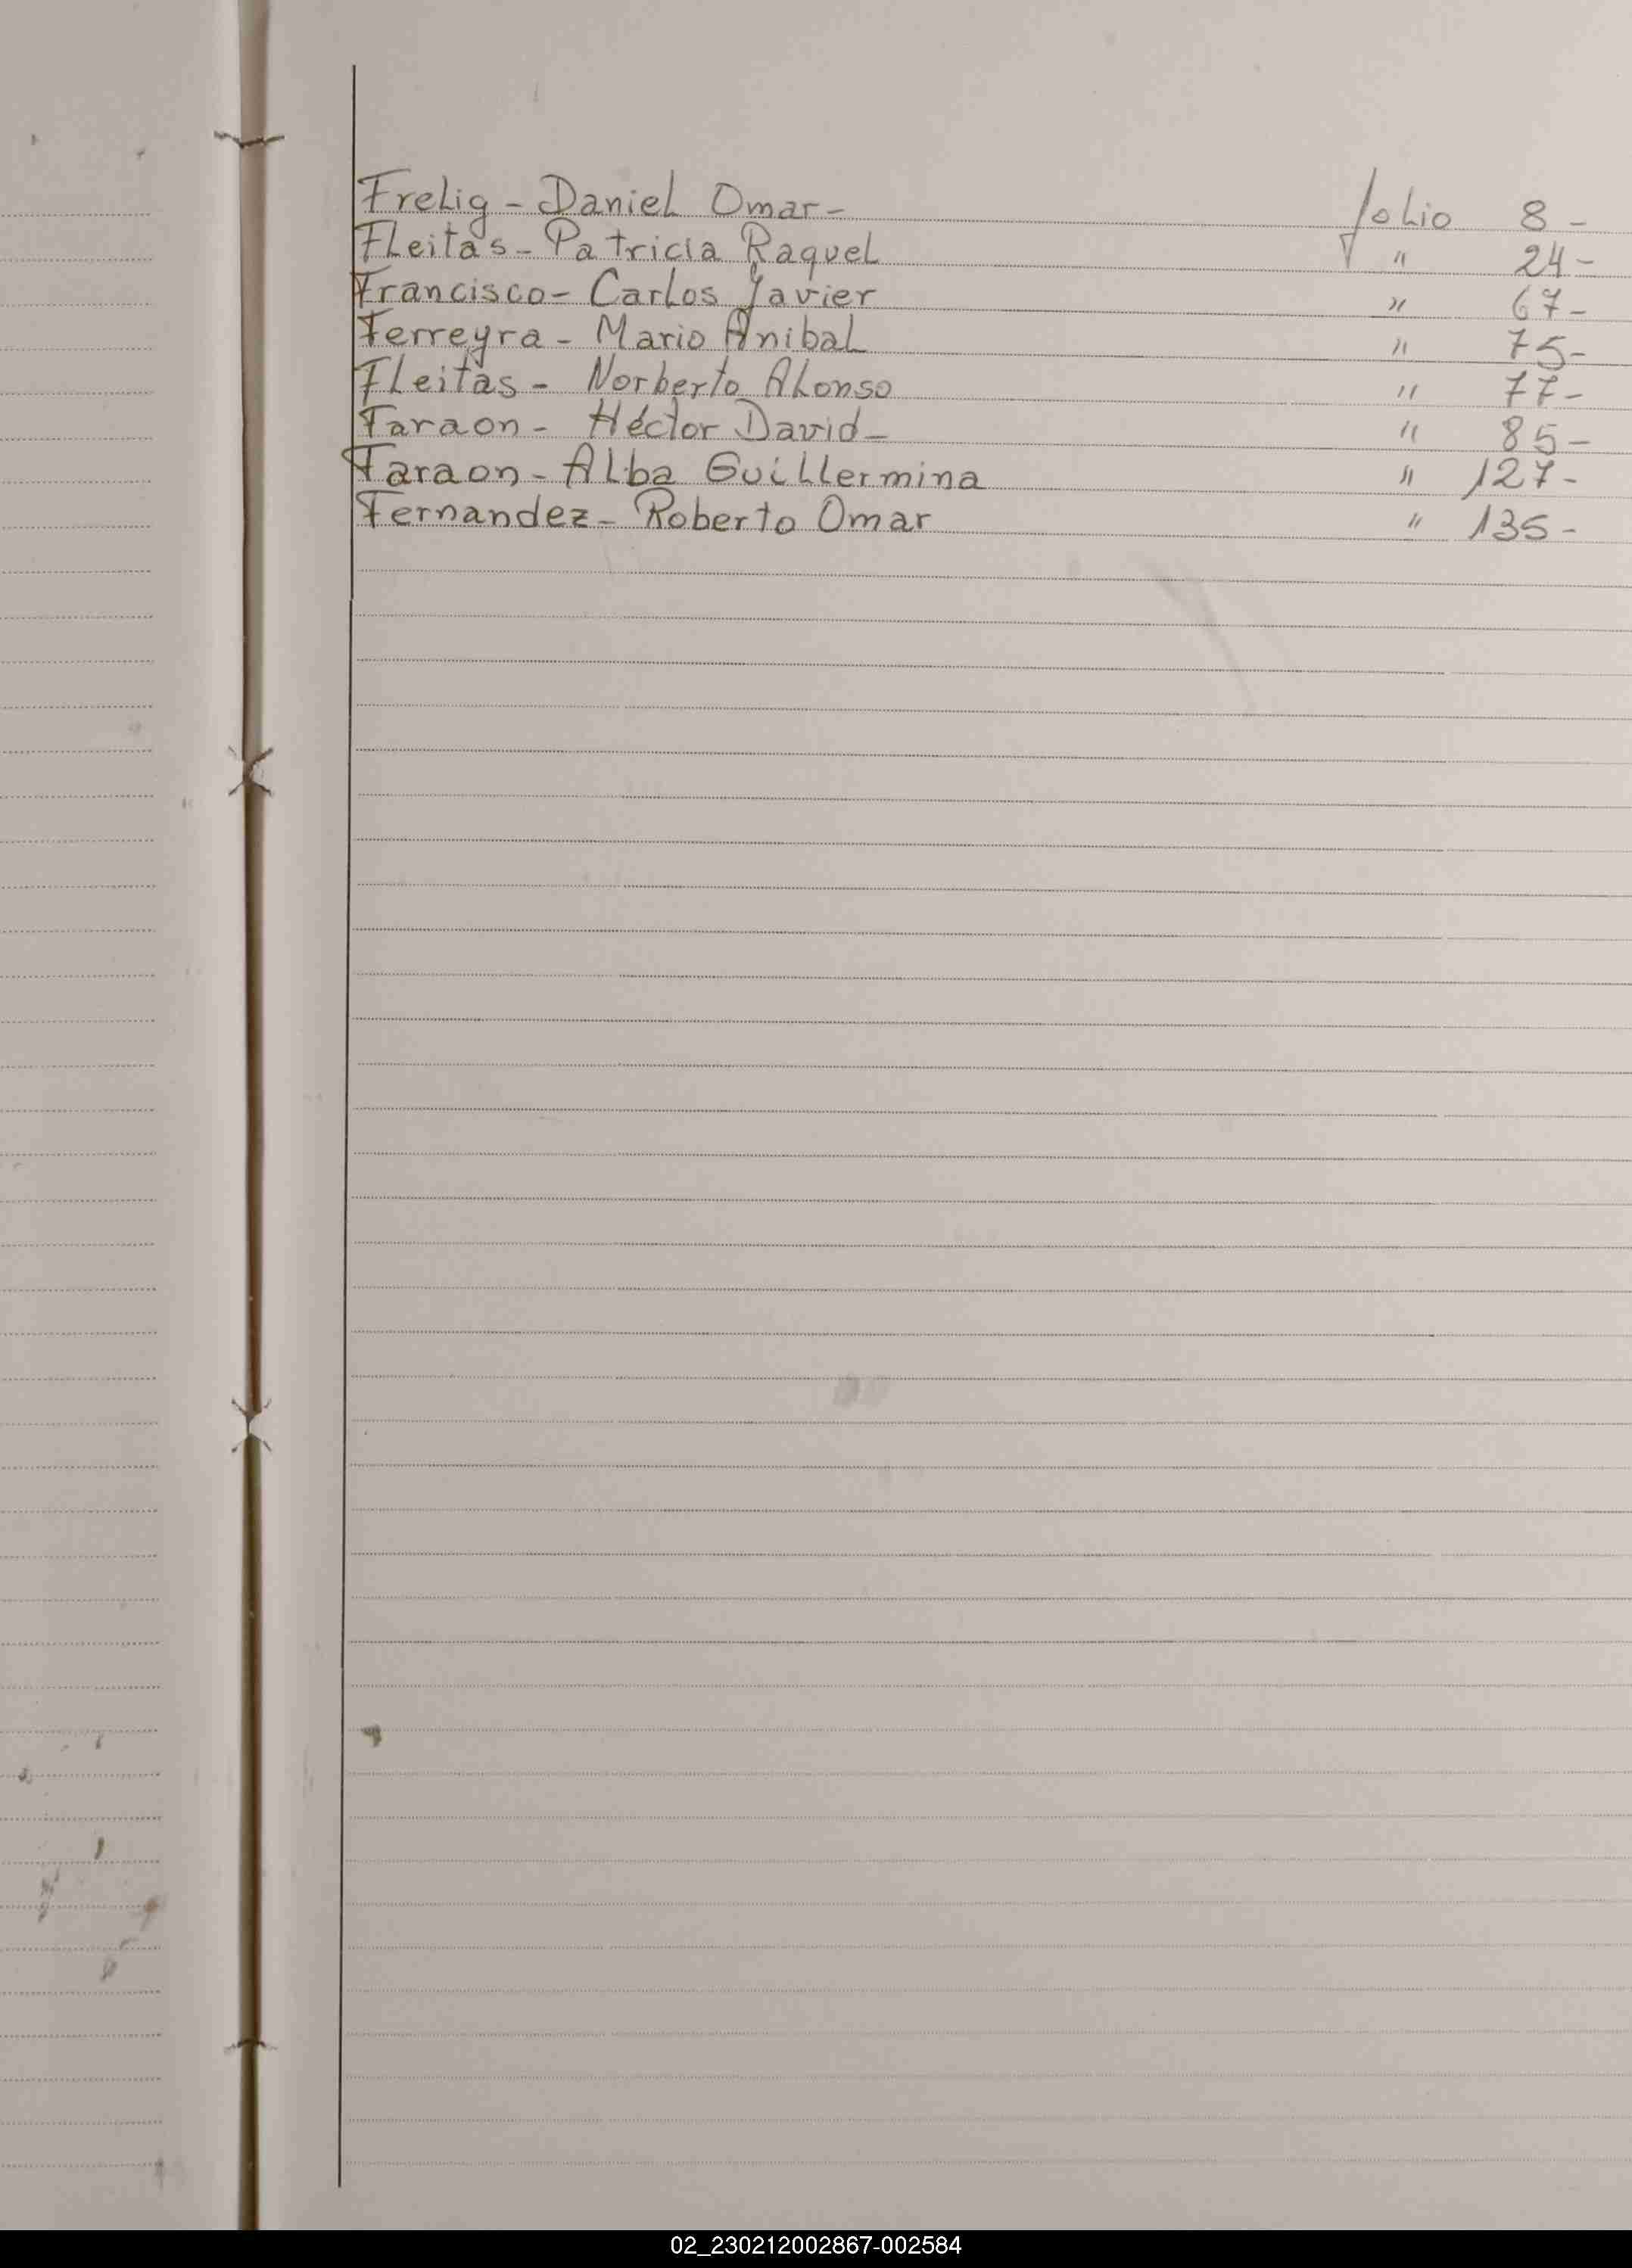 Frelig - Daniel Omar - folio 8 -
Fleitas - Patricia Raquel " 24 -
Francisco - Carlos Javier " 67 -
Ferreyra - Mario Anibal " 75 -
Fleitas - Norberto Alonso " 77 -
Faraon - Héctor David - " 85 -
Faraon - Alba Guillermina " 127 -
Fernandez - Roberto Omar " 135 -
02_230212002867-002584